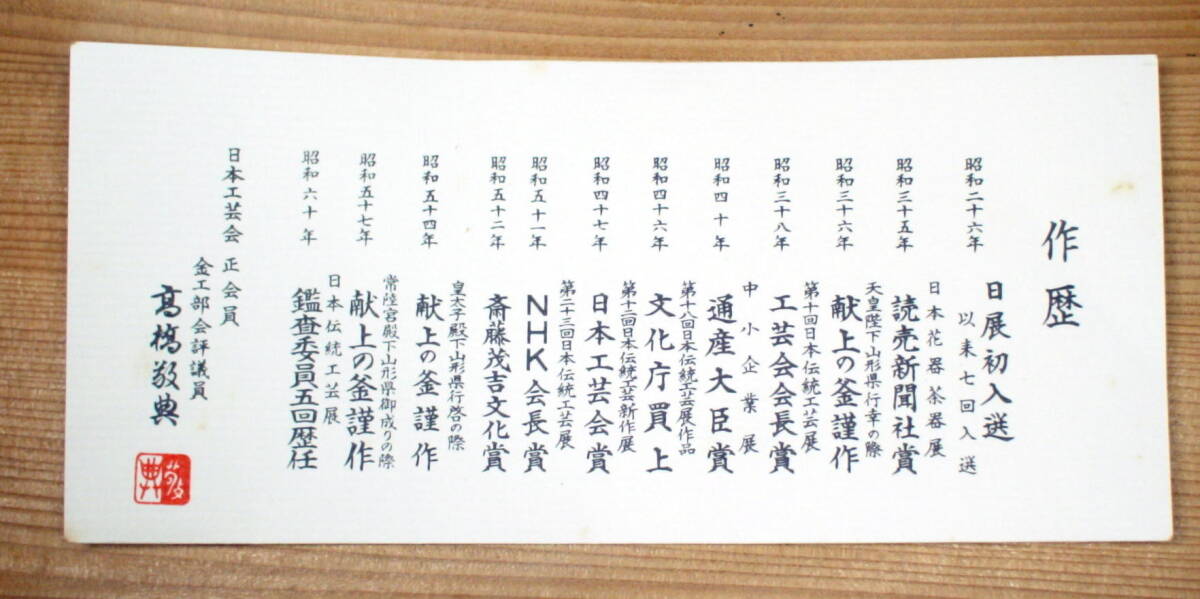 作歴
昭和二十六年 日展初入選
以来七回入選
日本花器茶器展
昭和三十五年 読売新聞社賞
天皇陛下山形県行幸の際
昭和三十六年 献上の釜謹作
第十回日本伝統工芸展
昭和三十八年 工芸会会長賞
中小企業展
昭和四十年 通産大臣賞
第十八回日本伝統工芸展作品
昭和四十六年 文化庁買上
第十二回日本伝統工芸新作展
昭和四十七年 日本工芸会賞
第二十三回日本伝統工芸展
昭和五十一年 NHK会長賞
昭和五十二年 斎藤茂吉文化賞
皇太子殿下山形県行啓の際
昭和五十四年 献上の釜謹作
常陸宮殿下山形県御成りの際
昭和五十七年 献上の釜謹作
日本伝統工芸展
昭和六十年 鑑査委員五回歴任
日本工芸会 正会員
金工部会評議員
高橋敬典
敬典